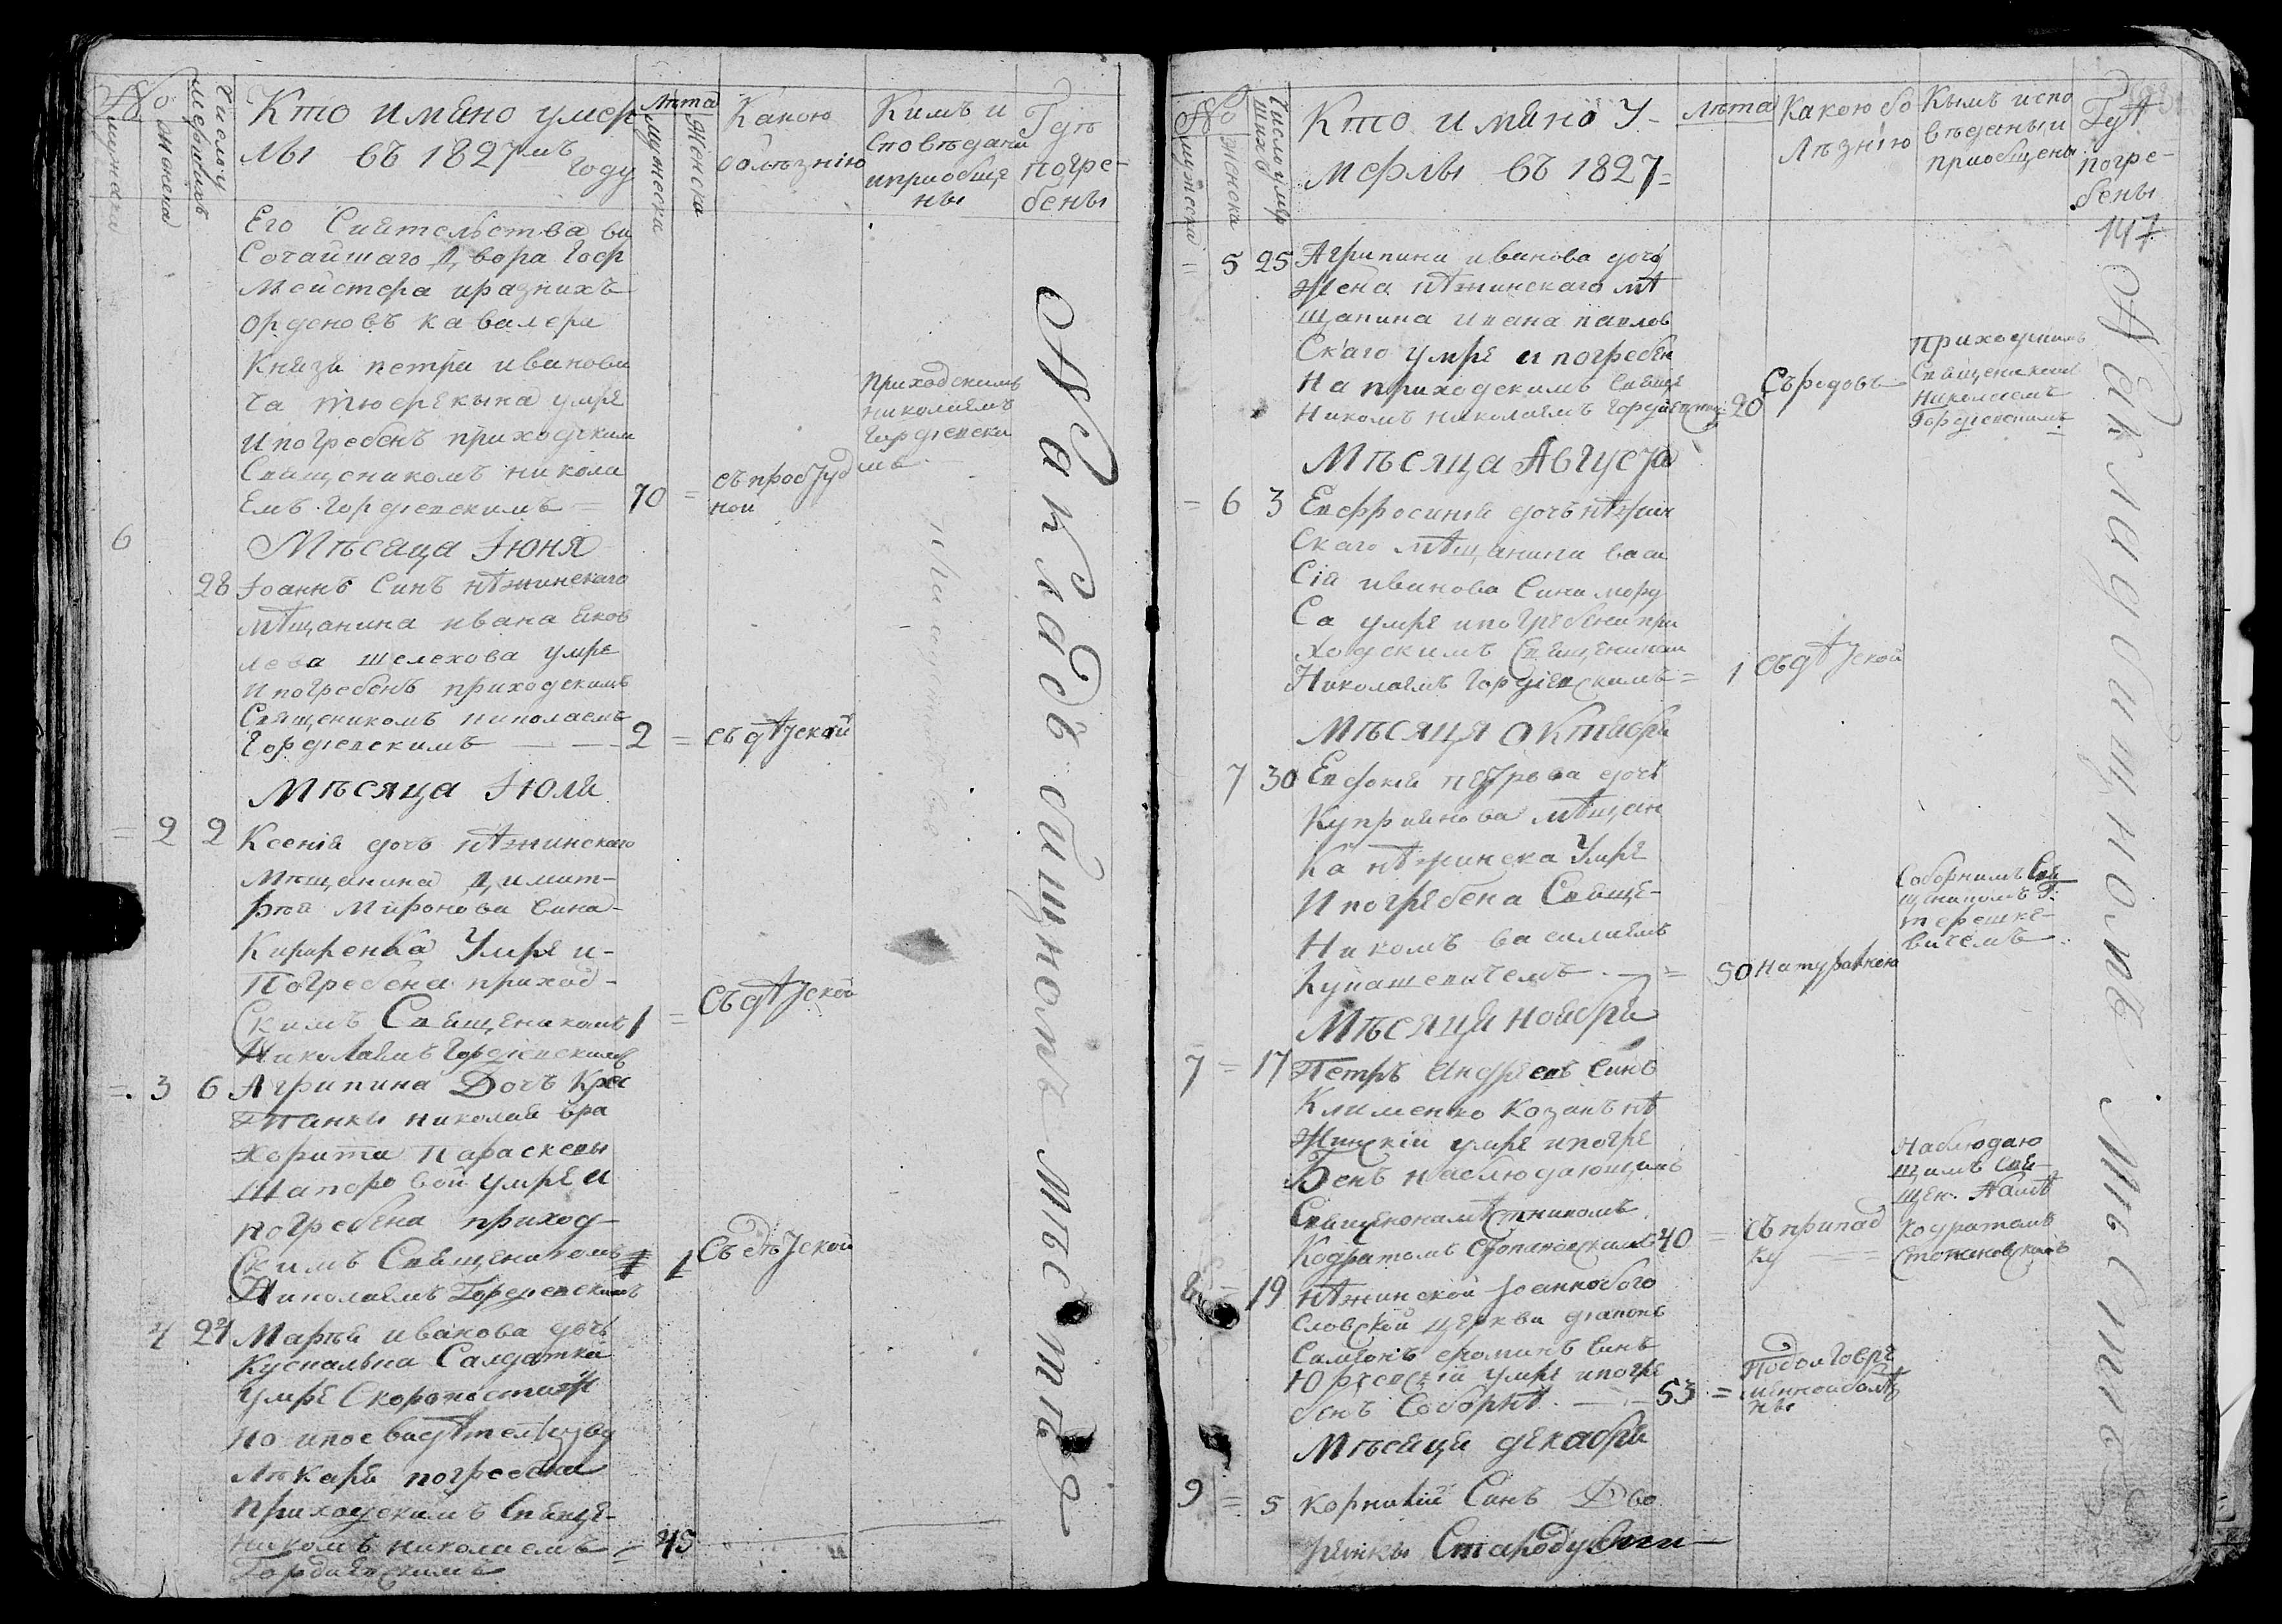 №
мужеска
женска
Число у
мерших
Кто имяно умер
лы въ 1827мъ
году
лѣта
мужеска
Женска
Какою
болѣзнію
Кимъ и
споведани
иприобще
ны
Гдѣ
погре-
бены
Его Сиятелства ви
Сочайшаго Двора Гоф
Мейстера иразнихъ
орденовъ кавалера
Князя петра иванови
ча тюфекина умре
Ипогребенъ приходским
Священикомъ никола
Емъ гордіевскимъ = 70 =
съпростуд
ной
Приходскимъ
николаемъ
Гордіевски
мъ
6
Мѣсяца Іюня
28 Іоаннъ Синъ нѣжинскаго
мѣщанина ивана яков
лева шелехова умре
Ипогребенъ приходскимъ
Священикомъ николаемъ
Гордіевскимъ — — 2 = съдѣтской
Мѣсяца Іюля
= 2 2 Ксенія дочъ нѣжинскаго
Мѣщанина Димит-
рія Миронова Сина-
Кирренка Умре и-
Погребена приход-
Скимъ Священикомъ 1 = Съдѣтской
Николаемъ Гордіевскимъ
= 3 6 Агрипина Дочъ Кре
николая
Параскевы
умре и
погребена приход-
Скимъ Священикомъ 1 Съдѣтской
Николаемъ Гордіевскимъ
4 24 Марія иванова дочъ
Салдатка
умре Скоропостиж
но ипосвидѣтелству
лѣкаря погребена
Приходскимъ Свяще-
никомъ николаемъ = 45
Гордіевскимъ
На кладбищномъ мѣстѣ
№
мужеска
Женска
Число умер
шихъ
Кто имяно У-
мерлы въ 1827=
лѣта
Какою бо
лѣзнію
Кымъ испо
вѣданы и
приобщены
Гдѣ
погре-
бены
147
= 5 25 Агрипина иванова дочъ
Жена нѣжинскаго мѣ
щанина ивана павлов
Скаго умре и погребен
На приходскимъ Свяще
Никомъ николаемъ Гордіевским 20
Съродовъ
Приходскимъ
Священикомъ
Николаемъ
Гордіевскимъ
Мѣсяца Августа
= 6 3 Евфросинія дочъ нѣжин
Скаго мѣщанина Васи
Сія иванова Сина
Са умре ипогребена при
ходскимъ Священиком
Николаемъ Гордіевскимъ = 1 Съдѣтской
Мѣсяця Октября
7 30 Евдокія петрова дочъ
Куприянова мѣщан
Ка нѣжинска Умре
Ипогребена Свяще-
Никомъ василиемъ
Купашевичемъ = 50 Натуралною
Соборнимъ Свя
щеникомъ Г.
терешке-
вичемъ
Мѣсяця ноября
7 = 17 Петръ Андреевъ Синъ
Клименко Козакъ нѣ
Жинскій умре ипогре
Бенъ наблюдающимъ
Священонамѣстникомъ
Кодратомъ Стопановскимъ 40 = съприпад
ку
Наблюдаю
щимъ Свя-
щен. Намѣ
кодратомъ
Стопановскимъ
8 = 19 нѣжинской Іоаннобого
Словской церкви діаконъ
Самсонъ фоминъ Синъ
Юревскій умре ипогре
бенъ Соборнѣ — 53 =
Подолговре
менной болѣз
ны
Мѣсяця декабря
9 = 5 Корнилій Синъ Дво
рянкы
На кладбищномъ Мѣстѣ